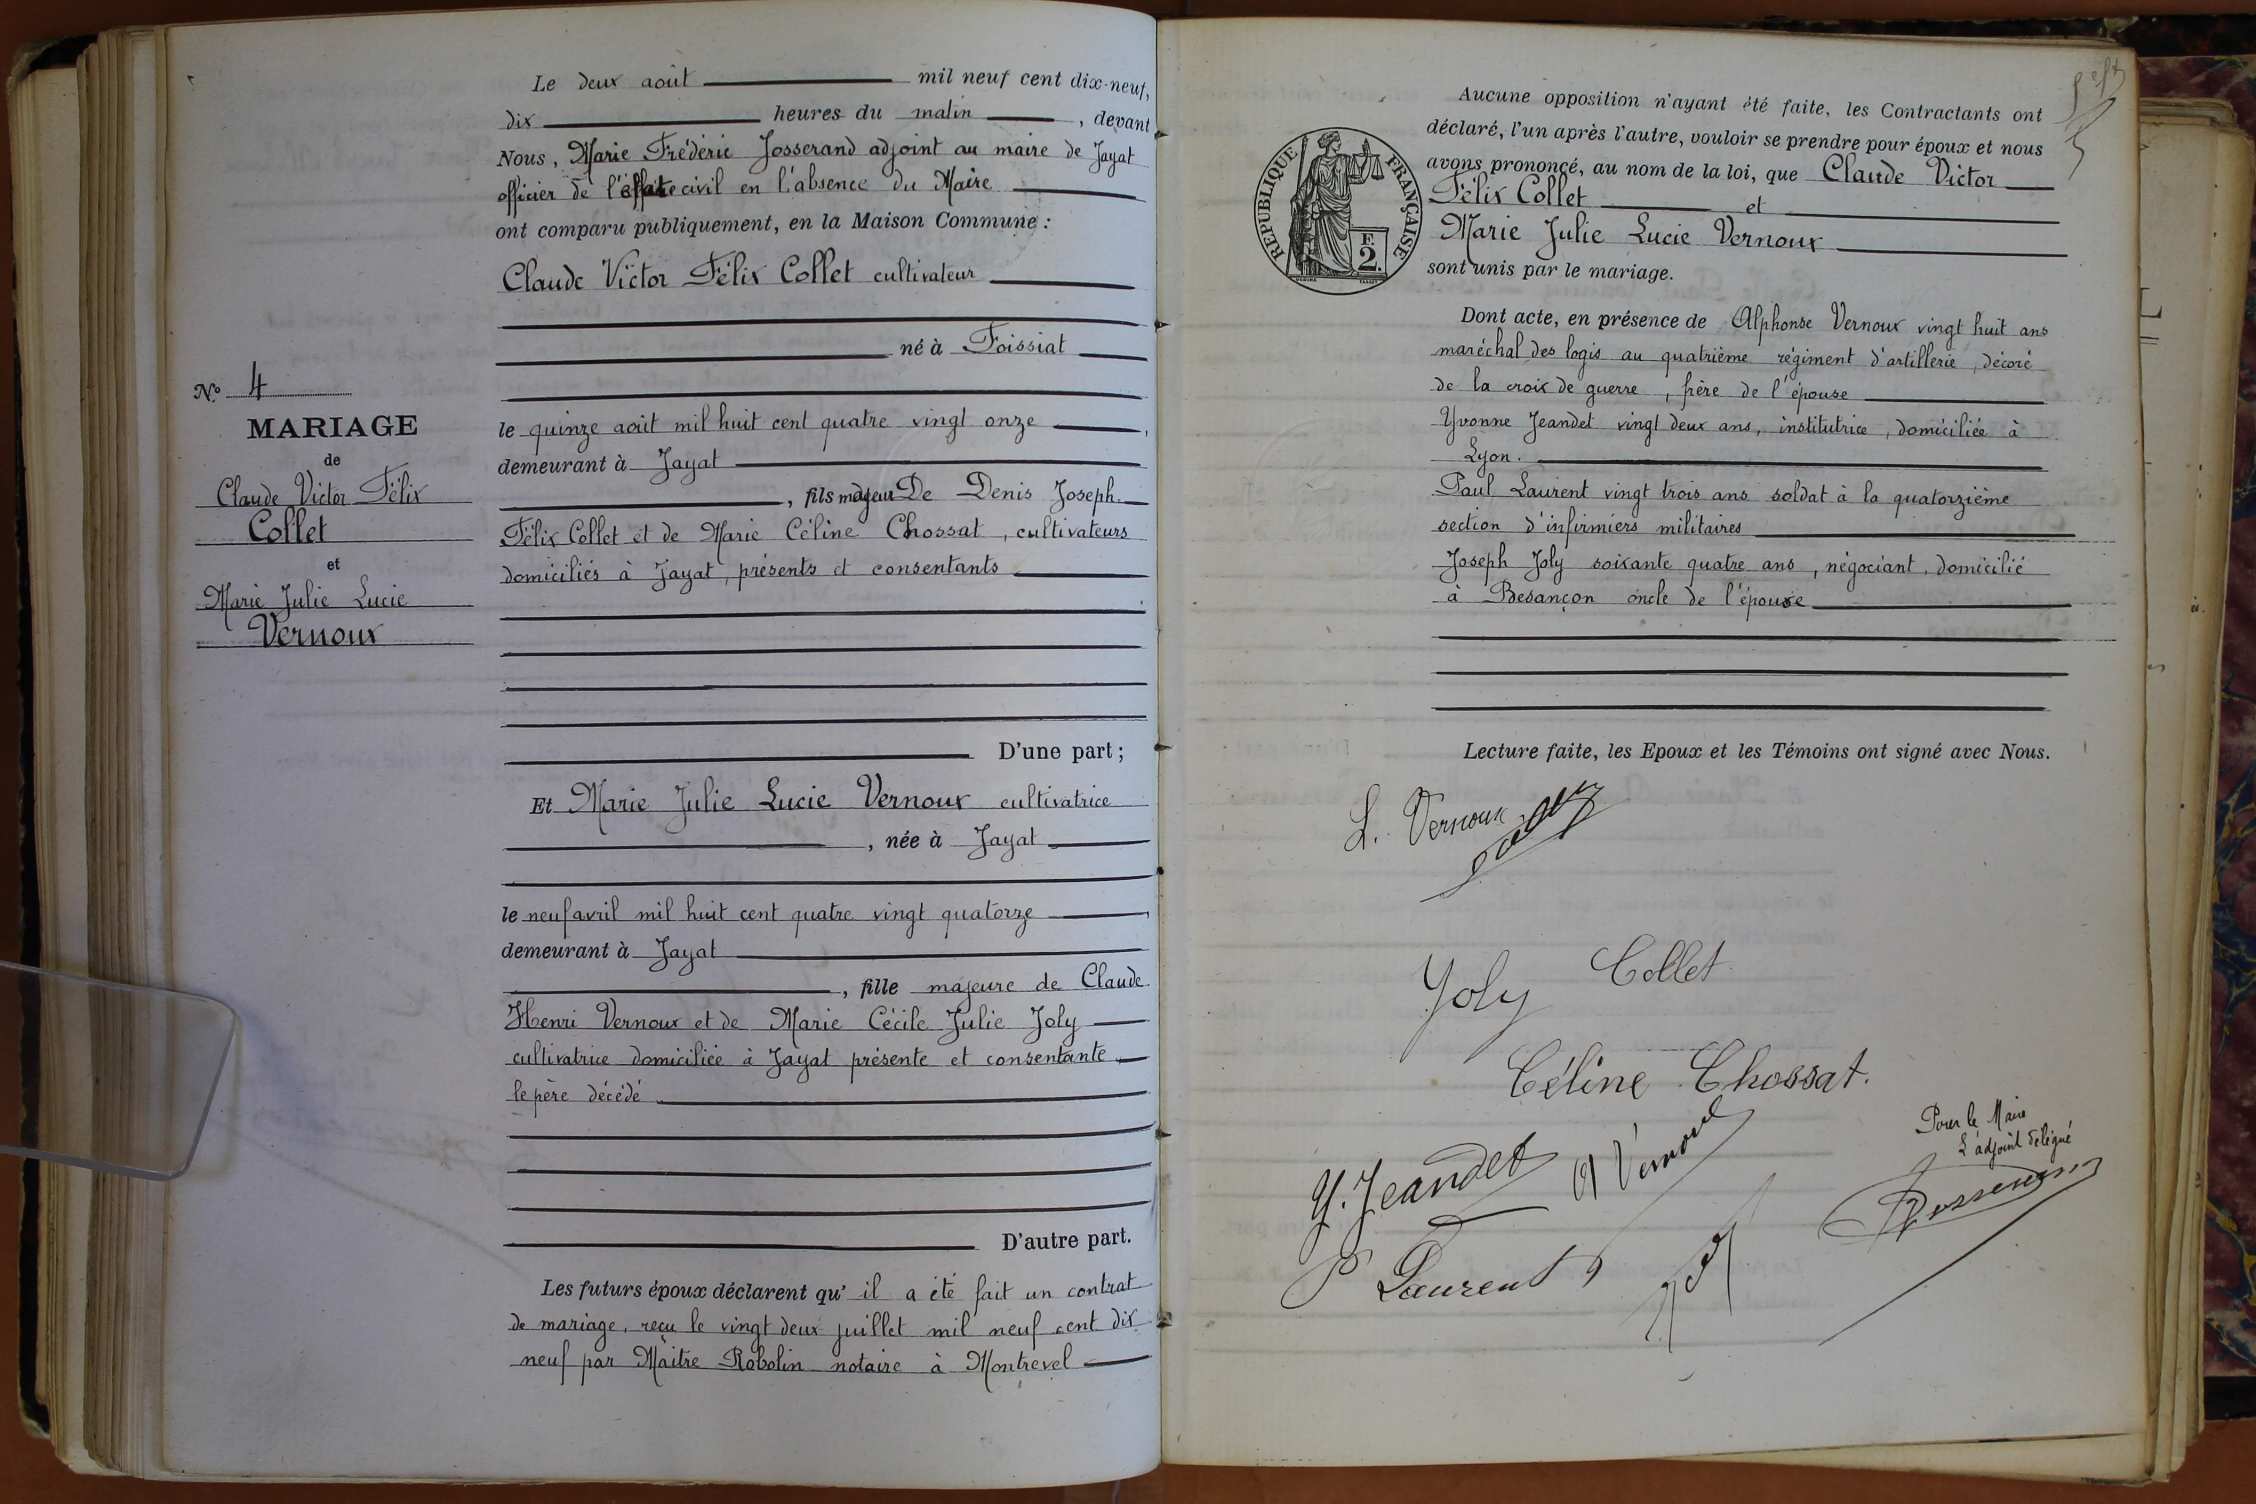 Le deux août mil neuf cent dix-neuf,
dix heures du matin, devant
Nous, Marie Frédéric Josserand adjoint au maire de Jayat
officier de l'état civil en l'absence du Maire
ont comparu publiquement, en la Maison Commune :
Claude Victor Félix Collet cultivateur
né à Foissiat
le quinze août mil huit cent quatre vingt onze,
demeurant à Jayat
, fils majeur De Denis Joseph
Félix Collet et de Marie Céline Chossat, cultivateurs
domiciliés à Jayat, présents et consentants
D'une part ;
Et Marie Julie Lucie Vernoux cultivatrice
, née à Jayat
le neuf avril mil huit cent quatre vingt quatorze,
demeurant à Jayat
, fille majeure de Claude
Henri Vernoux et de Marie Cécile Julie Joly
cultivatrice domiciliée à Jayat présente et consentante
le père décédé
D'autre part.
Les futurs époux déclarent qu' il a été fait un contrat
de mariage, reçu le vingt deux juillet mil neuf cent dix
neuf par Maitre Robolin notaire à Montrevel
No 4
MARIAGE
de
Claude Victor Félix
Collet
et
Marie Julie Lucie
Vernoux
Aucune opposition n'ayant été faite, les Contractants ont
déclaré, l'un après l'autre, vouloir se prendre pour époux et nous
avons prononcé, au nom de la loi, que Claude Victor
Félix Collet et
Marie Julie Lucie Vernoux
sont unis par le mariage.
RÉPUBLIQUE FRANÇAISE
F.
2.
Dont acte, en présence de Alphonse Vernoux vingt huit ans
maréchal des logis au quatrième régiment d'artillerie, décoré
de la croix de guerre, frère de l'épouse
Yvonne Jeandet vingt deux ans, institutrice, domiciliée à
Lyon.
Paul Laurent vingt trois ans soldat à la quatorzième
section d'infirmiers militaires
Joseph Joly soixante quatre ans, négociant, domicilié
à Besançon oncle de l'épouse
Lecture faite, les Epoux et les Témoins ont signé avec Nous.
L. Vernoux
Joly
Collet
Céline Chossat.
Y. Jeandet
A Vernoux
P Laurent
Pour le Maire
L'adjoint délégué
Josserand